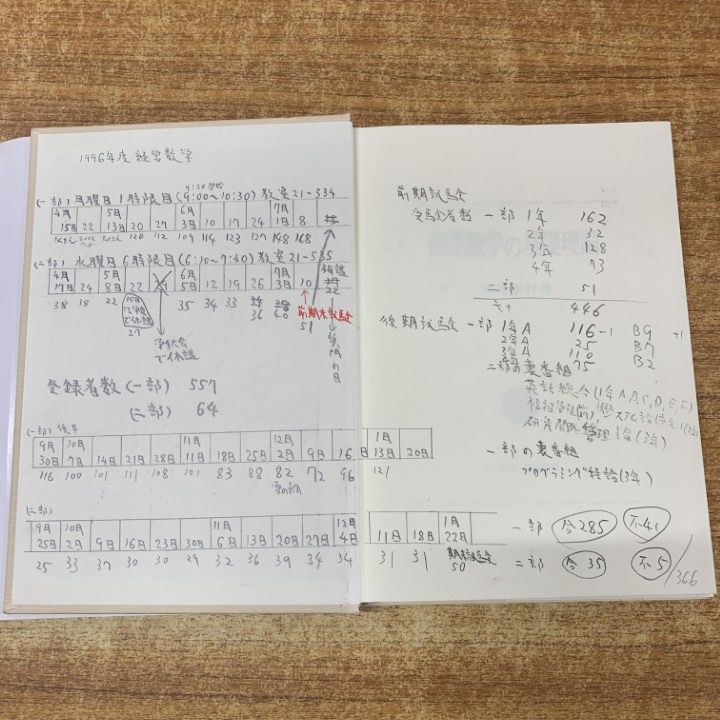 1996年度 経営数学
9:20開始
(一部) 月曜日1時限目(9:00~10:30) 教室21-534
4月 5月 6月 7月
15日 22 13日 20 27 3日 10 17 24 1日 8
120 112 109 114 123 127 148 168
(二部) 水曜日6時限目(6:10~7:40) 教室21-535
4月 5月 6月 7月 休講
17日 24 8日 22 29 5日 12 19 26 3日 10
22
38 38 22 35 34 33
36 40
前期末試験
51
27
で休講
登録者数 (一部) 557
(二部) 64
(一部) 後半
9月 10月 11月 12月
30日 7日 14日 21日 28日 11日 18日 25日 2日 9日 16日
116 100 104 101 111 83 88 82 72 96
(二部)
9月 10月 11月 12月
25日 2日 9日 16日 23日 30日 6日 13日 20日 27日 4日
25 33 37 30 30 29 32 36 39 34 34
前期試験
受験者数 一部 1年 162
2年 32
3年 128
4年 73
二部 51
計 446
後期試験 一部 1年A 116 -1 B9 +1
2年A 25 B7
3年A 110 B2
75
二部の裏番組
英語総合(1年A,B,C,D,E,F)
一部の裏番組
プログラミング経論(3年)
1月
13日 20日
121
1月
11日 18日 22日
31 31 期末試験
50
一部 合285 不41
二部 合35 不5
366